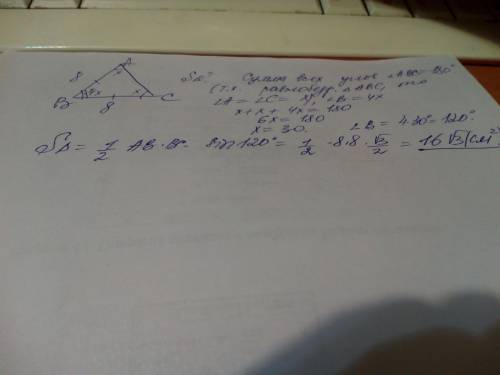 A
8
x
4x
x
B
8
C
S△? Сумма всех углов △ABC = 180°
(т.к. равнобедр. △ABC, то
∠A = ∠C = x), ∠B = 4x
x + x + 4x = 180
6x = 180
x = 30. ∠B = 4·30° = 120°.
S△ = 1/2 AB·BC· sin 120° = 1/2 ·8·8· √3/2 = 16√3 (см²)